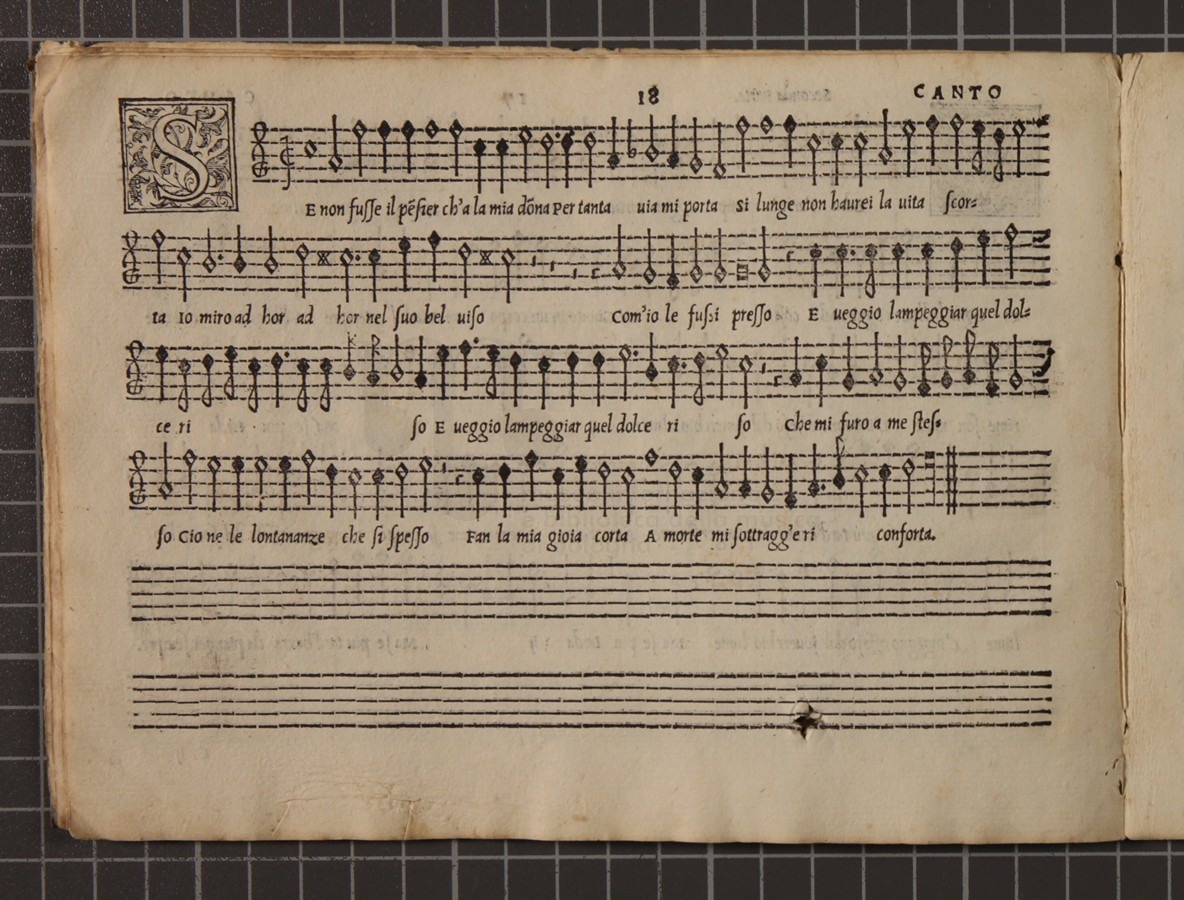 18 CANTO
S E non fusse il pēsier ch'a la mia dōna Per tanta uia mi porta Si lunge non haurei la uita scor-
ta Io miro ad hor ad hor nel suo bel uiso Com'io le fussi presso E ueggio lampeggiar quel dol-
ce ri so E ueggio lampeggiar quel dolce ri so Che mi furo a me stes-
so Cio ne le lontananze che si spesso Fan la mia gioia corta A morte mi sottragg'e ri conforta.